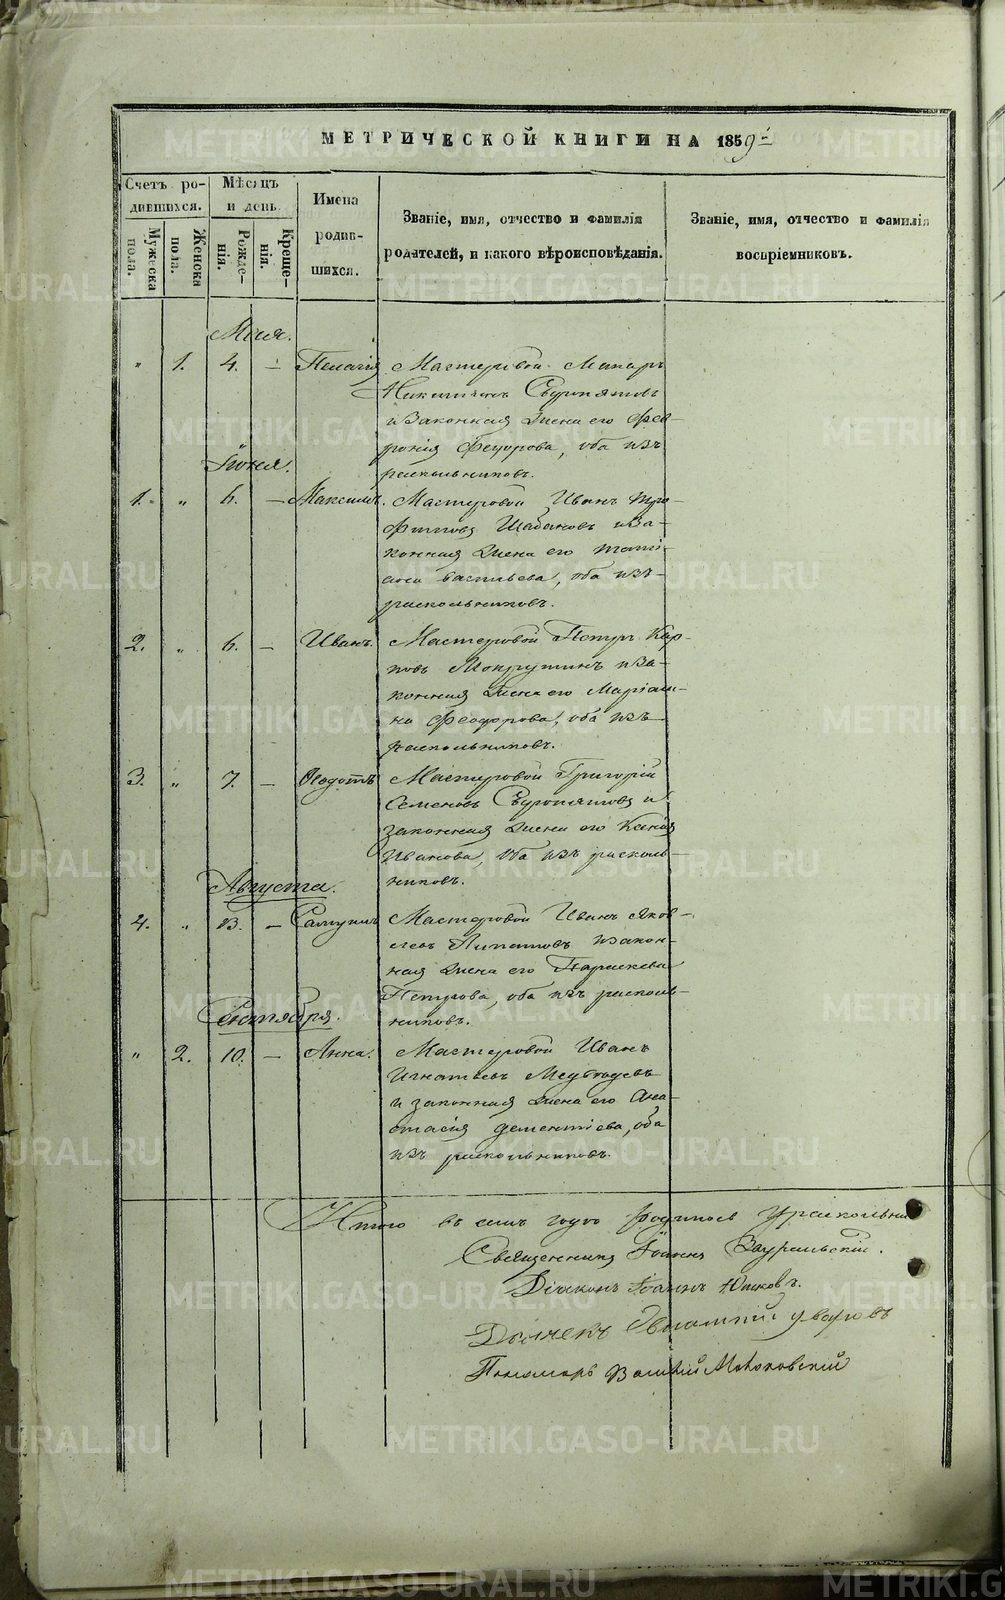 МЕТРИЧЕСКОЙ КНИГИ НА 1859й
Счетъ ро-
дившихся.
Мужеска
пола.
Женска
пола.
Мѣсяцъ
и день.
Рожде-
нія.
Креще-
нія.
Имена
родив-
шихся.
Званіе, имя, отчество и фамилія
родателей, и какого вѣроисповѣданія.
Званіе, имя, отчество и фамилія
воспріемниковъ.
Мая.
" 1. 4. — Пелагія Мастеровой Макаръ
и Законная жена его Фев-
ронія Феодорова, оба изъ
раскольниковъ.
Іюня.
1. " 6. — Максимъ. Мастеровой Иванъ Тро-
фимовъ Шабановъ и за-
конная жена его Тати-
ана Васильева, оба изъ
раскольниковъ.
2. " 6. — Иванъ. Мастеровой Петръ Кар-
повъ Мокрушинъ и за-
конная жена его Маріам-
на Феодорова, оба изъ
раскольниковъ.
3. " 7. — Ѳедотъ Мастеровой Григорій
Семеновъ и
законная жена его
Иванова, оба изъ расколь-
никовъ.
Августа.
4. " 13. — Самуилъ Мастеровой Иванъ Яков-
левъ Липатовъ и закон-
ная жена его Параскева
Петрова, оба изъ расколь-
никовъ.
Сентября.
" 2. 10. — Анна. Мастеровой Иванъ
Игнатьевъ Медвѣдевъ
и законная жена его Ана-
стасія Дементіева, оба
изъ раскольниковъ.
Итого въ семъ году родилось у раскольник
Священникъ Іоаннъ Зауральскій.
Діаконъ Іоаннъ Юшковъ.
Дьячекъ Уваровъ
Пономарь
METRIKI.GASO-URAL.RU